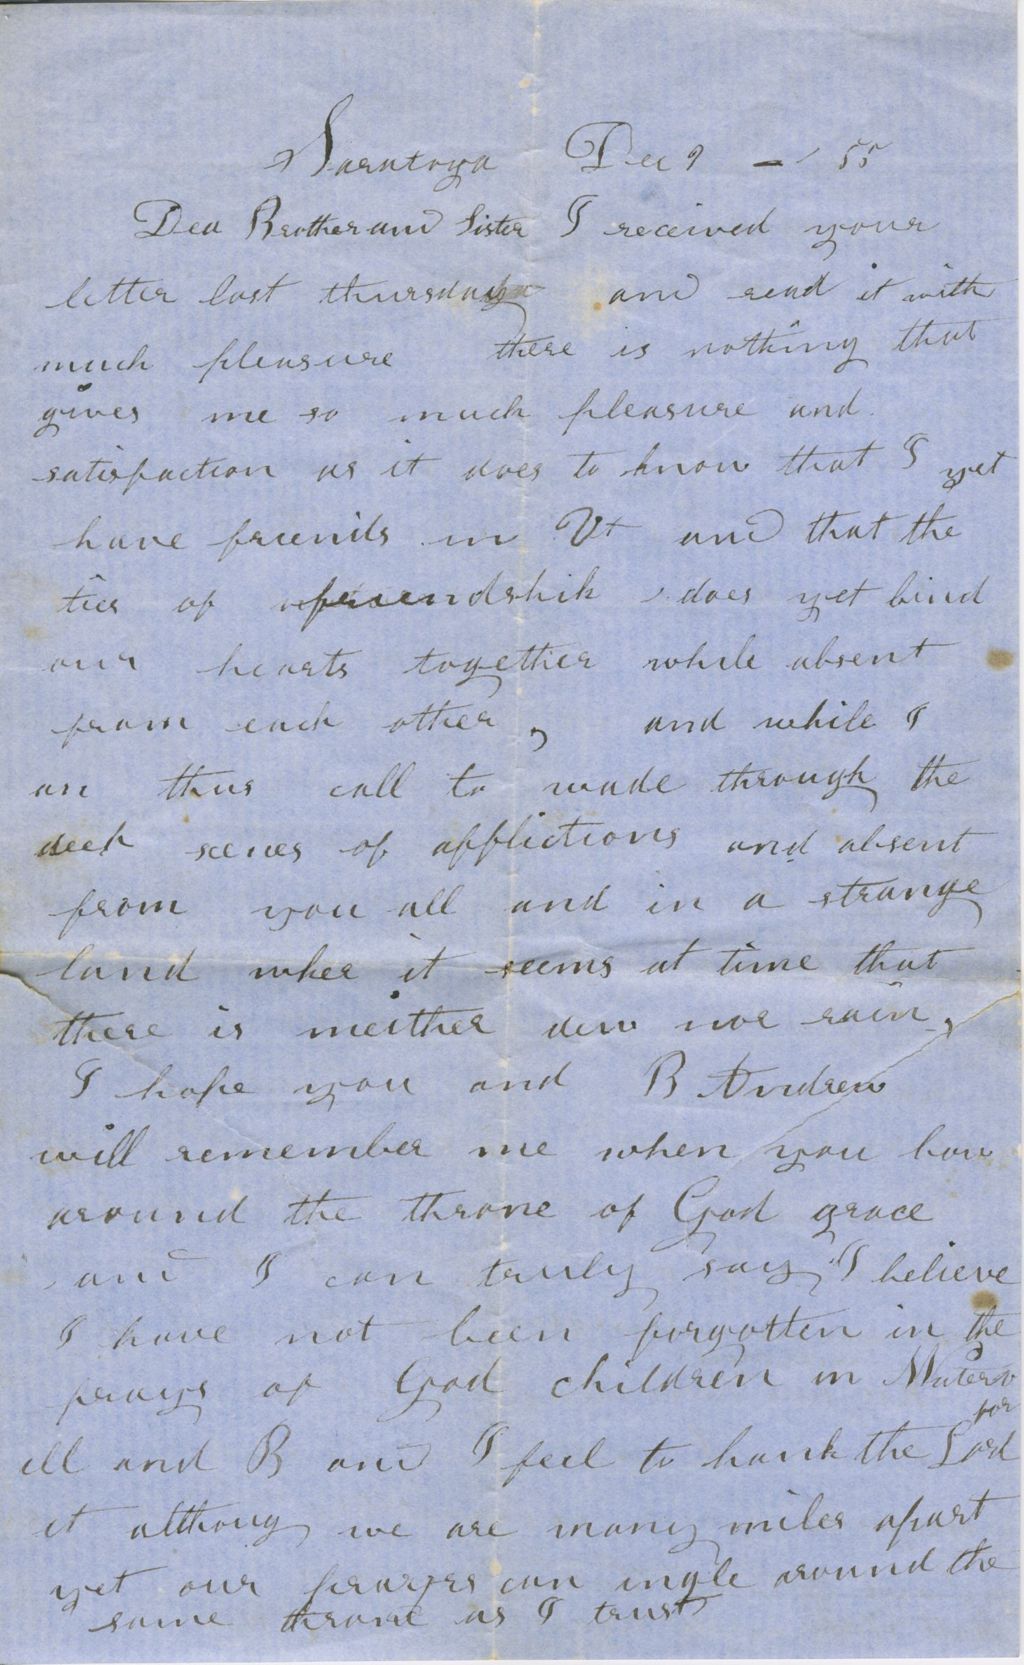 Saratoga Dec 9 - 55
Dea Brother and Sister I received your
letter last thursday and read it with
much pleasure there is nothing that
gives me so much pleasure and
satisfaction as it does to know that I yet
have friends in Vt and that the
ties of friendship does yet bind
our hearts together while absent
from each other, and while I
an thus call to wade through the
deep scenes of afflictions and absent
from you all and in a strange
land wher it seems at time that
there is neither dew nor rain,
I hope you and B Andrew
will remember me when you bow
around the throne of God grace
and I can truly say I believe
I have not been forgotten in the
prays of God children in Waterv
ill and B and I feel to hank the Lord for
it althoug we are many miles apart
yet our prayrs can ingle around the
same throne as I trust